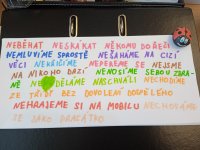 NEBĚHAT NESKÁKAT NĚKOMU DO ŘEČI
NEMLUVÍME SPROSTĚ NESAHÁME NA CIZÍ
VĚCI NEKŘIČÍME NEPEREME SE NEJSME
NA NIKOHO DRZÍ NENOSÍME SEBOU ZBRA-
NĚ NEDĚLÁME NASCHVÁLI NECHODÍME
ZE TŘÍDY BEZ DOVOLENÍ DOSPĚLÉHO
NEHRAJEME SI NA MOBILU NECHOVÁME
SE JAKO PRASÁTKO